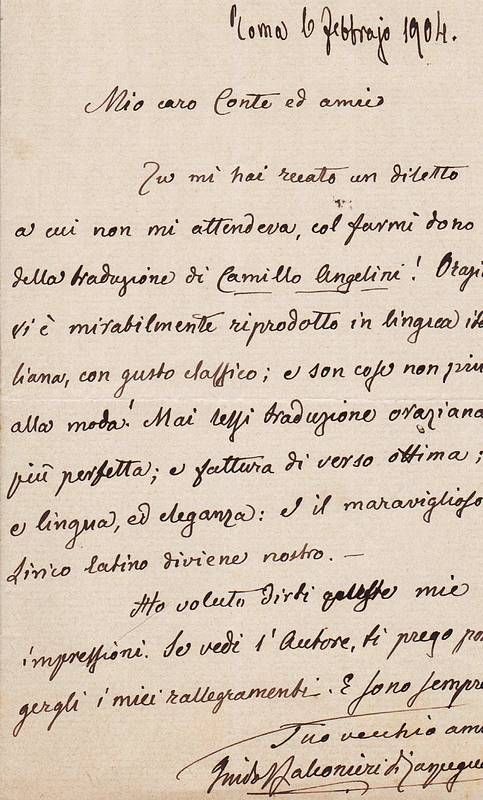 Roma 6 febbrajo 1904.
Mio caro Conte ed amico
Tu mi hai recato un diletto
a cui non mi attendeva, col farmi dono
della traduzione di Camillo Angelini! Orazi
vi è mirabilmente riprodotto in lingua ita
liana, con gusto classico; e son cose non più
alla moda! Mai lessi traduzione oraziana
più perfetta; e fattura di verso ottima;
e lingua, ed eleganza: e il maraviglioso
Lirico latino diviene nostro. —
Ho voluto dirti queste mie
impressioni. Se vedi l'Autore, ti prego por
gergli i miei rallegramenti. E sono sempre
Tuo vecchio ami
Guido Falconieri di